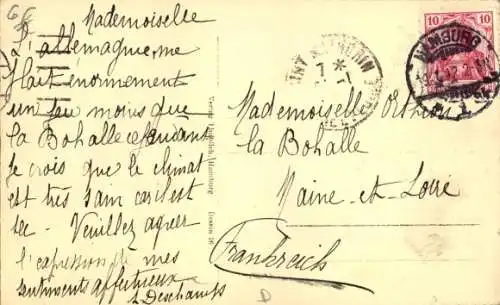 Mademoiselle
L'allemagne me
plait énormement
un peu moins que
la Bohalle cependant
je crois que le climat
est très sain car c'est
sec - Veuillez agréer
l'expression de mes
sentiments affectueux
Deschamps
10 10
HAMBURG
Mademoiselle
La Bohalle
Maine-et-Loire
Frankreich